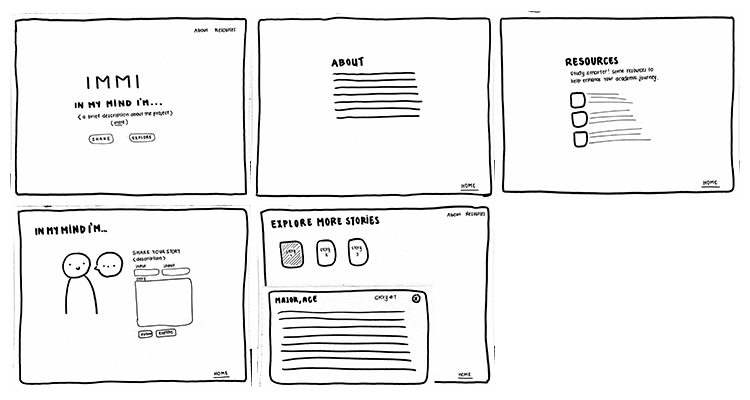 About Resources
IMMI
IN MY MIND I'M...
(a brief description about the project)
(more)
SHARE EXPLORE
ABOUT
HOME
RESOURCES
Study smarter! Some resources to
help enhance your academic journey.
HOME
IN MY MIND I'M...
SHARE YOUR STORY
(description)
input input
story
EXPLORE
HOME
EXPLORE MORE STORIES
About Resources
story
story
story
MAJOR, AGE story #1 X
HOME